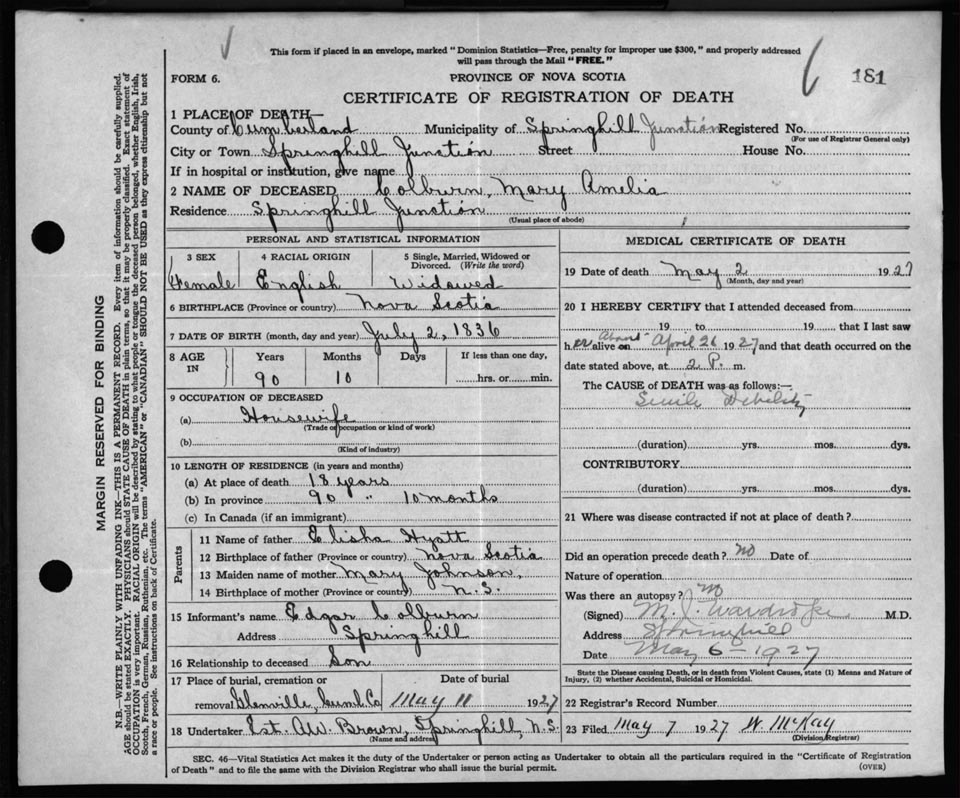 This form if placed in an envelope, marked "Dominion Statistics—Free, penalty for improper use $300," and properly addressed
will pass through the Mail "FREE."
181
FORM 6.
PROVINCE OF NOVA SCOTIA
CERTIFICATE OF REGISTRATION OF DEATH
1 PLACE OF DEATH—
County of Cumberland Municipality of Springhill Junction Registered No.
(For use of Registrar General only)
City or Town Springhill Junction Street House No.
If in hospital or institution, give name
2 NAME OF DECEASED Colburn, Mary Amelia
Residence Springhill Junction
(Usual place of abode)
PERSONAL AND STATISTICAL INFORMATION
3 SEX 4 RACIAL ORIGIN 5 Single, Married, Widowed or
Divorced. (Write the word)
Female English Widowed
6 BIRTHPLACE (Province or country) Nova Scotia
7 DATE OF BIRTH (month, day and year) July 2, 1836
8 AGE IN Years Months Days If less than one day,
90 10 hrs. or min.
9 OCCUPATION OF DECEASED
(a) Housewife
(Trade occupation or kind of work)
(b)
(Kind of industry)
10 LENGTH OF RESIDENCE (in years and months)
(a) At place of death 18 years
(b) In province 90 " 10 months
(c) In Canada (if an immigrant)
Parents
11 Name of father Elisha Hyatt
12 Birthplace of father (Province or country) Nova Scotia
13 Maiden name of mother Mary Johnson,
14 Birthplace of mother (Province or country) N.S.
15 Informant's name Edgar Colburn
Address Springhill
16 Relationship to deceased Son
17 Place of burial, cremation or Date of burial
removal Glenville, Cumb. Co May 11 1927
18 Undertaker Est. A.W. Brown, Springhill, N.S.
(Name and address)
MEDICAL CERTIFICATE OF DEATH
19 Date of death May 2 1927
(Month, day and year)
20 I HEREBY CERTIFY that I attended deceased from
19 to 19 that I last saw
her alive on About April 26 1927 and that death occurred on the
date stated above, at 2 P. m.
The CAUSE of DEATH was as follows:—
Senile Debility
(duration) yrs. mos. dys.
CONTRIBUTORY
(duration) yrs. mos. dys.
21 Where was disease contracted if not at place of death?
Did an operation precede death? no Date of
Nature of operation
Was there an autopsy? no
(Signed) M. J. Wardrope M.D.
Address Springhill
Date May 6—1927
State the Disease causing Death, or in death from Violent Causes, state (1) Means and Nature of
Injury, (2) whether Accidental, Suicidal or Homicidal.
22 Registrar's Record Number
23 Filed May 7 1927 W. McKay
(Division Registrar)
SEC. 46—Vital Statistics Act makes it the duty of the Undertaker or person acting as Undertaker to obtain all the particulars required in the "Certificate of Registration
of Death" and to file the same with the Division Registrar who shall issue the burial permit.
(OVER)
MARGIN RESERVED FOR BINDING
N.B.—WRITE PLAINLY WITH UNFADING INK—THIS IS A PERMANENT RECORD. Every item of information should be carefully supplied.
AGE should be stated EXACTLY. PHYSICIANS should STATE CAUSE OF DEATH in plain terms, so that it may be properly classified. Exact statement of
OCCUPATION is very important. RACIAL ORIGIN will be described by stating to what people or tongue the deceased person belonged, whether English, Irish,
Scotch, French, German, Russian, Ruthenian, etc. The terms "AMERICAN" or "CANADIAN" SHOULD NOT BE USED as they express citizenship but not
a race or people. See instructions on back of Certificate.